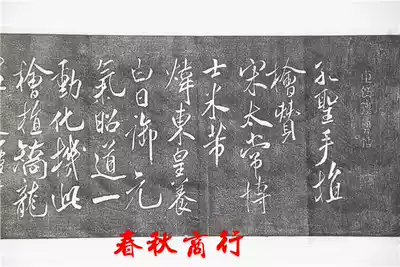 孔聖手植
檜贊
宋太常博
士米芾
煒東皇養
白日御元
氣昭道一
動化機此
檜植矯龍
春秋商行